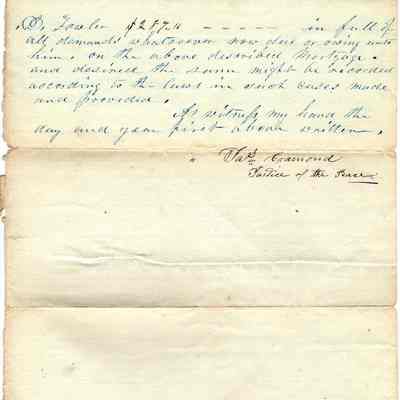 D. Fowler $297.10 - - - - - in full of
all demands whatsoever now due or owing unto
him. on the above described Mortgage.
and desired the same might be recorded
according to the laws in such cases made
and provided.
As witness my hand the
day and year first above written.
Jas. Cramond
Justice of the Peace